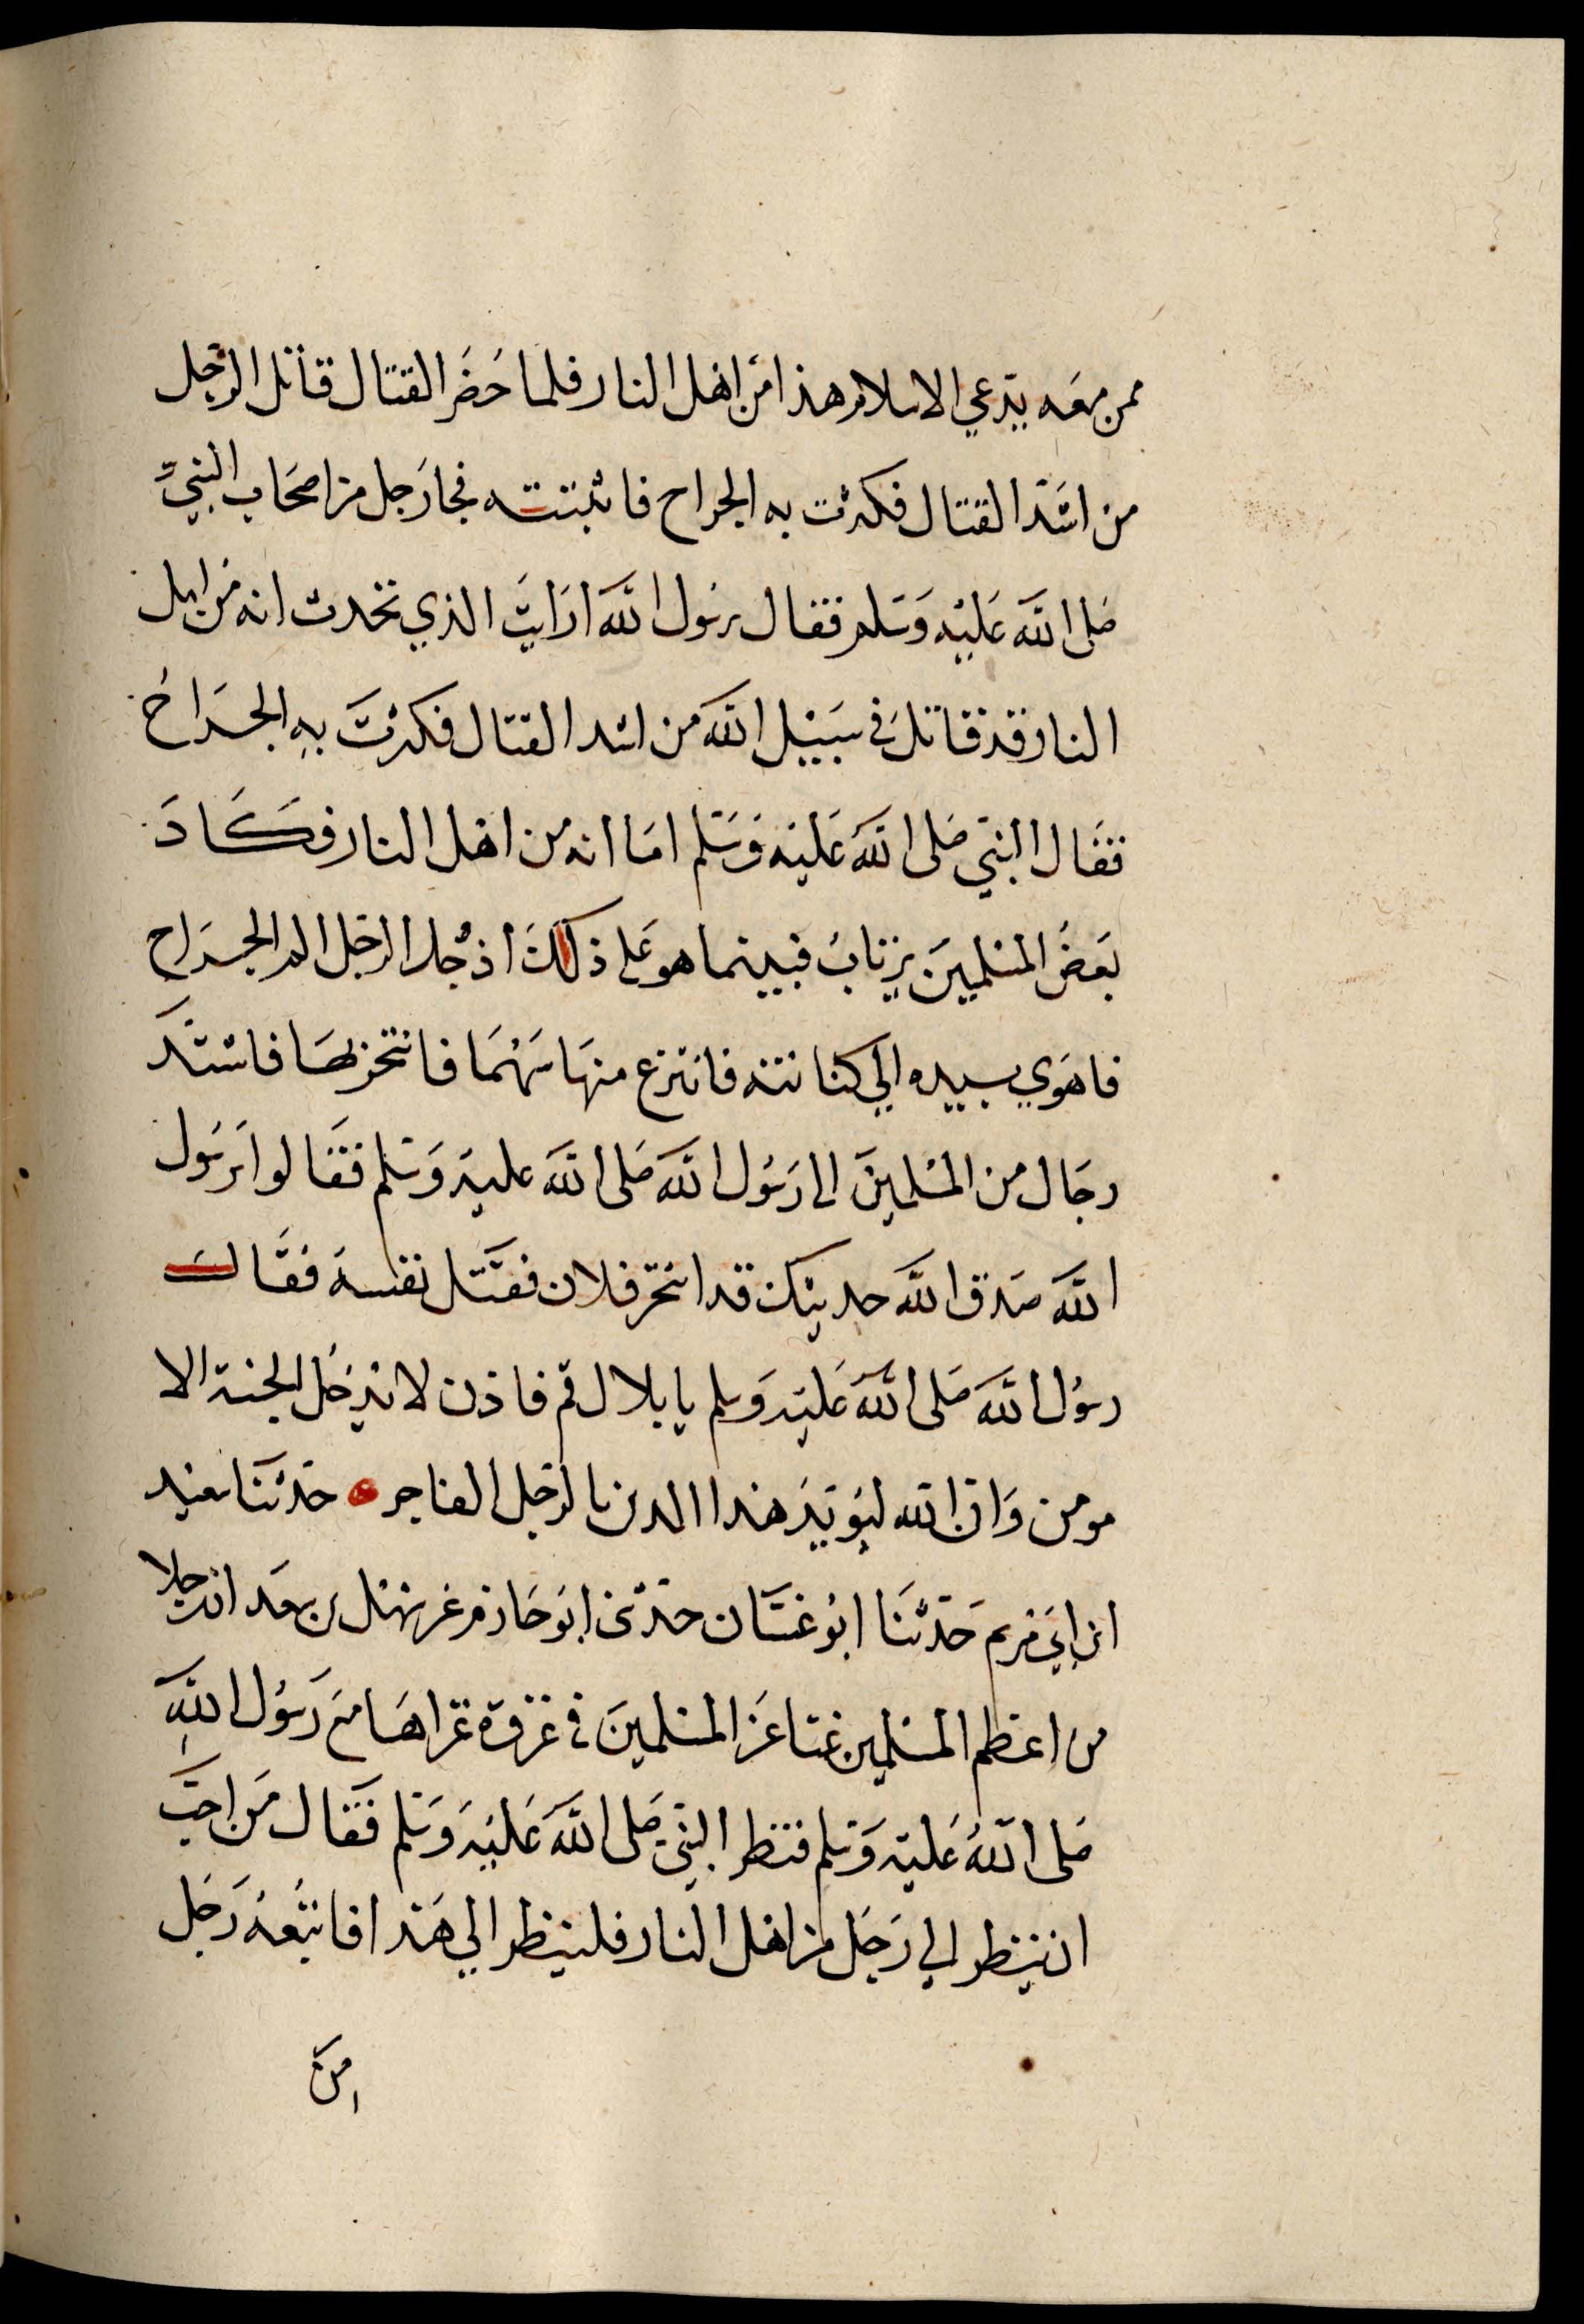 ممن معه يدعي الاسلام هذا من اهل النار فلما حضر القتال قاتل الرجل
من اشد القتال فكثرت به الجراح فاثبتته فجا رجل من اصحاب النبي
صلى الله عليه وسلم فقال يرسول الله ارايت الذي تحدث انه من اهل
النار قد قاتل في سبيل الله من اشد القتال فكثرت به الجراح
فقال النبي صلى الله عليه وسلم اما انه من اهل النار فكاد
بعض المسلمين يرتاب فبينما هو على ذلك اذ وجد الرجل الم الجراح
فاهوي بيده الي كنانته فانتزع منها سهما فانتحر بها فاشتد
رجال من المسلمين الى رسول الله صلى الله عليه وسلم فقالوا يرسول
الله صدق الله حديثك قد انتحر فلان فقتل نفسه فقال
رسول الله صلى الله عليه وسلم يا بلال قم فاذن لا يدخل الجنة الا
مومن وان الله ليويد هذا الدين بالرجل الفاجر حدثنا سعيد
ابن ابي مريم حدثنا ابو غسان حدثني ابو حازم عن سهل بن سعد ان رجلا
من اعظم المسلمين غنا عن المسلمين في غزوة غزاها مع رسول الله
صلى الله عليه وسلم فنظر النبي صلى الله عليه وسلم فقال من احب
ان ينظر الى رجل من اهل النار فلينظر الي هذا فاتبعه رجل
من